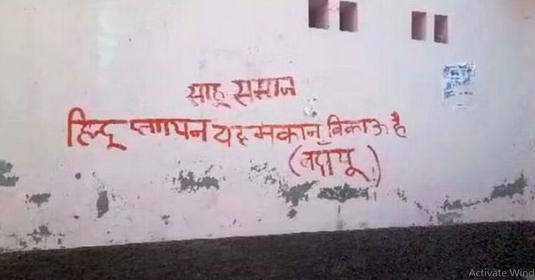 साहू समाज
हिन्दू पलायन यह मकान बिकाऊ है
(बदायूं)
Activate Wind